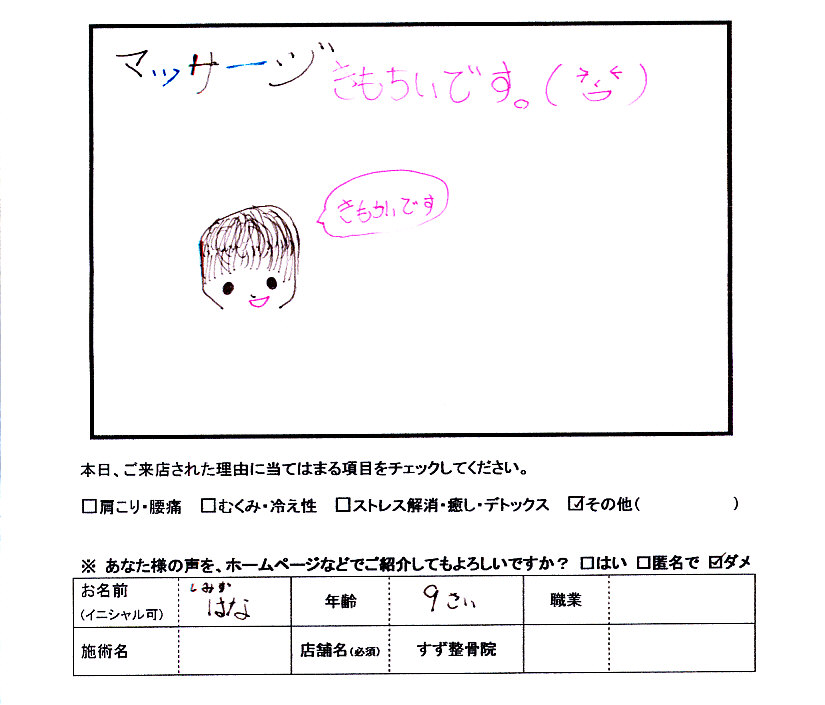 マッサージきもちいです。
きもちいです
本日、ご来店された理由に当てはまる項目をチェックしてください。
□肩こり・腰痛 □むくみ・冷え性 □ストレス解消・癒し・デトックス ☑その他( )
※ あなた様の声を、ホームページなどでご紹介してもよろしいですか? □はい □匿名で ☑ダメ
お名前 年齢 9さい 職業
(イニシャル可) はな
施術名 店舗名(必須) すず整骨院